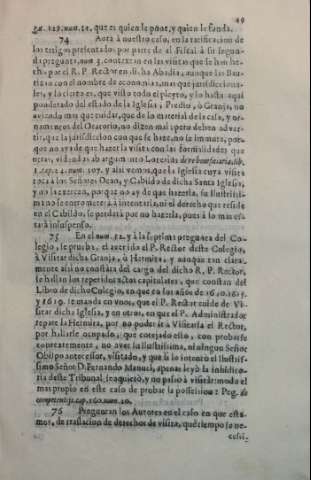 49
74 Aora à nuestro caso, en la ratificacion de
los testigos presentados por parte de el Fiscal à su segun-
da pregunta, num. 3. contextan en las visitas que se han he-
cho por el R. P. Rector en dicha Abadia, aunque las Bau-
tizan con el nombre de economicas, mas que jurisdicciona-
les, y lo cierto es, que visto todo el pleyto, y lo hasta aqui
ponderado del estado de la Iglesia, Predio, ò Granja, no
aviendo mas que cuidar, que de lo material de la casa, y or-
namentos del Oratorio, no dizen mal; pero deben adver-
tir, que la jurisdiccion con que se haze, no se inmuta, por-
que no aya de que hazer la visita con las formalidades que
otras,
y assi vemos, que la Iglesia cuya visita
toca à los Señores Dean, y Cabildo de dicha Santa Iglesia,
y no la exerzan, por que no ay de que hazerla, su Ilustrissi-
ma no se entrometerà à intentarla, ni el derecho que reside
en el Cabildo, se perderà por no hazerla, pues à lo mas es-
tarà insuspenso.
75 En el num. 52. y à la septima pregunta del Co-
legio, se prueba, el averido el P. Rector deste Colegio,
à Visitar dicha Granja, ò Hermita, y aunque tan clara-
mente assi no constàra del cargo del dicho R. P. Rector,
se hallan los repetidos actos capitulares, que constan del
Libro de dicho Colegio, en que en los años de
y 1619. se manda en unos, que el P. Rector cuide de Vi-
sitar dicha Iglesia, y en otros, en que el P. Administrador
repare la Hermita, por no poder ir à Visitarla el Rector,
por hallarse ocupado, que cotejado esto, con probarse
concretamente, no aver su Ilustrissima, ni ningun Señor
Obispo antecessor, visitado, y que si lo intentò el Ilustris-
simo Señor D. Fernando Manuel, apenas leyò la inhibito-
ria deste Tribunal, se aquietò, y no passò à visitar: modo el
mas propio en este caso de probar la possession: Peg. de
76 Preguntan los Autores en el caso en que esta-
mos, de traslacion de derechos de visita, què tiempo se ne-
cessi-